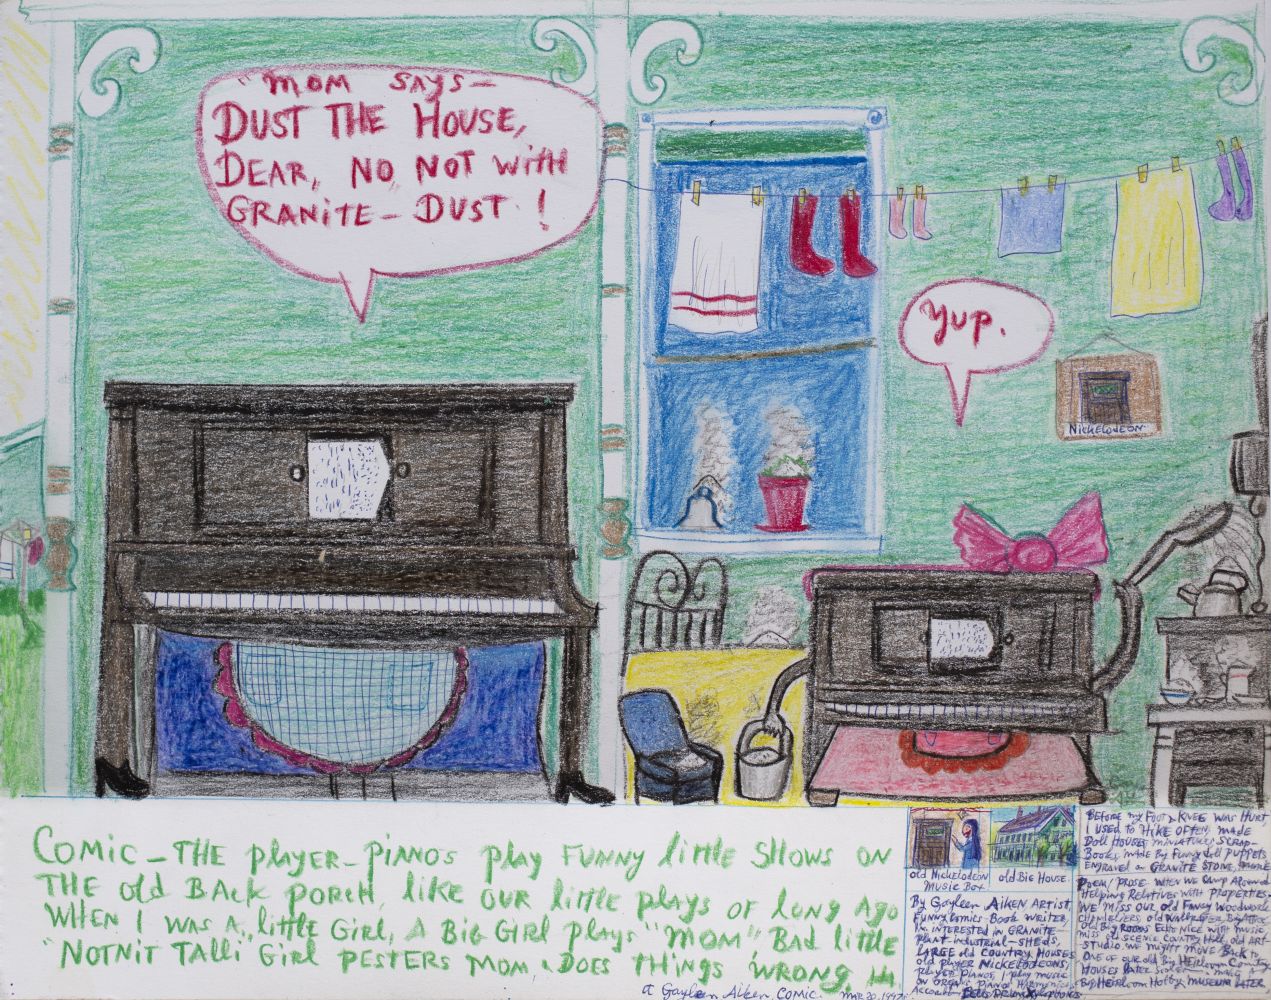 "MOM SAYS—
DUST THE HOUSE,
DEAR," NO, NOT WITH
GRANITE—DUST!
YUP.
NICKELODEON
COMIC—THE PLAYER-PIANOS PLAY FUNNY LITTLE SHOWS ON
THE OLD BACK PORCH LIKE OUR LITTLE PLAYS OF LONG AGO
WHEN I WAS A LITTLE GIRL, A BIG GIRL PLAYS "MOM" BAD LITTLE
"NOTNIT TALLI GIRL PESTERS MOM, DOES THINGS WRONG,
a Gayleen Aiken Comic. MAR. 20, 1997
old Nickelodeon
Music Box
old Big House
By Gayleen AIKEN ARTIST,
FUNNY COMICS BOOK WRITER
I'M INTERESTED IN GRANITE—
PLANT INDUSTRIAL-SHEDS,
LARGE old COUNTRY HOUSES
old player NICKELODEONS,
PLAYER PIANOS, I PLAY MUSIC
ON ORGAN, PIANO, HARMONICA
ACCORD
BEFORE MY FOOT & KNEE WAS HURT
I USED TO HIKE OFTEN, MADE
Doll HOUSES MINIATURES, SCRAP-
BOOKS, MADE BIG FUNNY doll PUPPETS
ENGRAVED ON GRANITE STONE,
POEM/PROSE WHEN WE CAMP AROUND
HELPING RELATIVES WITH PROPERTIES,
WE MISS OUR old FANCY WOODWORK
CHANDELIERS, old WALLPAPER, BIG ATTIC
OLD BIG ROOMS ECHO NICE WITH MUSIC,
MISS old SCENIC COUNTRY HILL, old ART-
STUDIO. WE MIGHT MOVE BACK TO
ONE OF OUR old BIG HEIRLOOM COUNTRY
HOUSES LATER MAKE A
BIG HEIRLOOM HOBBY MUSEUM LATER